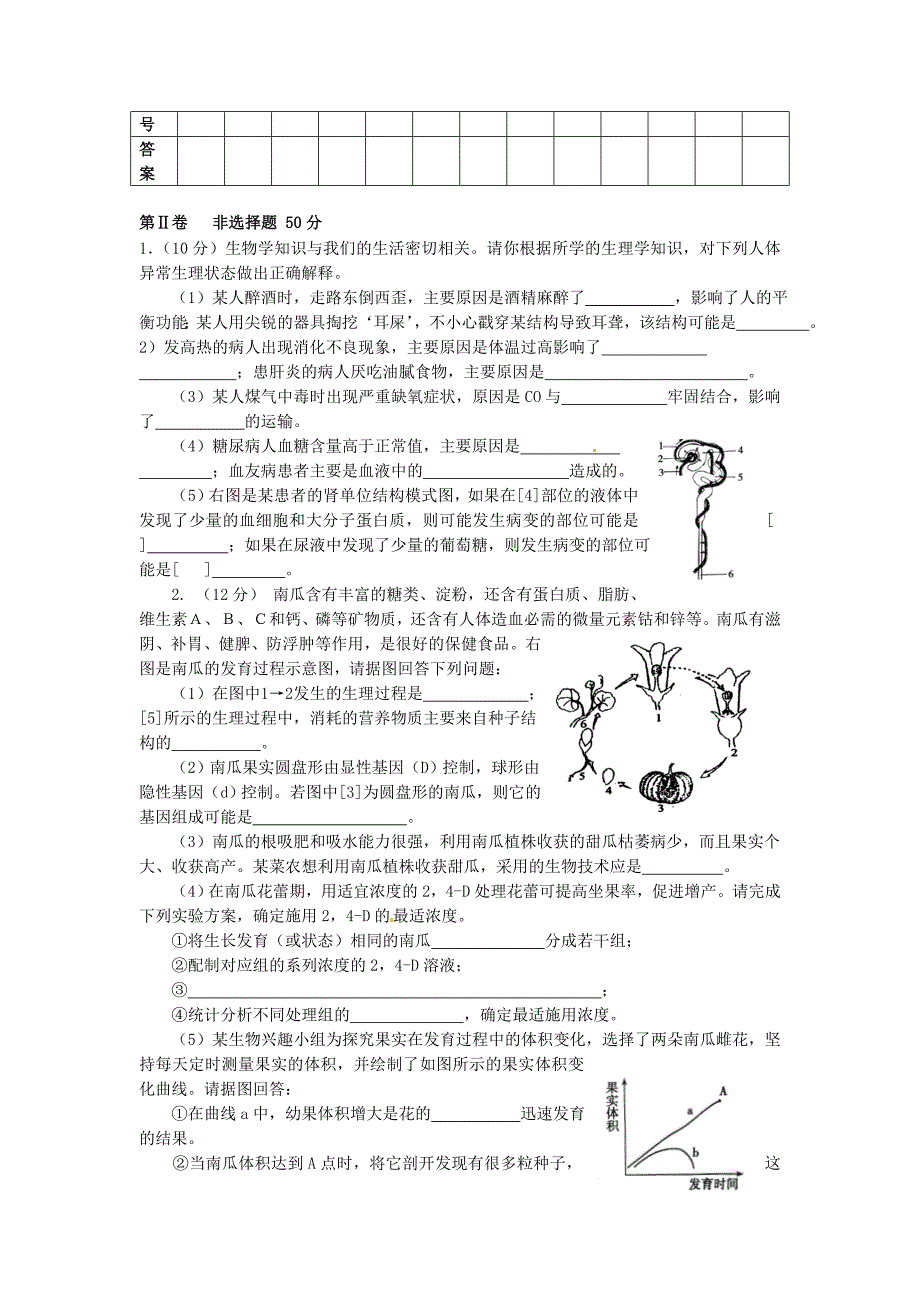 号
答
案
第Ⅱ卷 非选择题 50分
1.（10分）生物学知识与我们的生活密切相关。请你根据所学的生理学知识，对下列人体
异常生理状态做出正确解释。
（1）某人醉酒时，走路东倒西歪，主要原因是酒精麻醉了___________，影响了人的平
衡功能;某人用尖锐的器具掏挖‘耳屎’，不小心戳穿某结构导致耳聋，该结构可能是_________。
2）发高热的病人出现消化不良现象，主要原因是体温过高影响了_____________
____________；患肝炎的病人厌吃油腻食物，主要原因是_________________________。
（3）某人煤气中毒时出现严重缺氧症状，原因是CO与_____________牢固结合，影响
了___________的运输。
（4）糖尿病人血糖含量高于正常值，主要原因是____________
_________；血友病患者主要是血液中的__________________造成的。
（5）右图是某患者的肾单位结构模式图，如果在[4]部位的液体中
发现了少量的血细胞和大分子蛋白质，则可能发生病变的部位可能是 [
]__________；如果在尿液中发现了少量的葡萄糖，则发生病变的部位可
能是[ ]_________。
1
2
3
4
5
6
2. （12分） 南瓜含有丰富的糖类、淀粉，还含有蛋白质、脂肪、
维生素A、B、C和钙、磷等矿物质，还含有人体造血必需的微量元素钴和锌等。南瓜有滋
阴、补胃、健脾、防浮肿等作用，是很好的保健食品。右
图是南瓜的发育过程示意图，请据图回答下列问题：
（1）在图中1→2发生的生理过程是_____________；
[5]所示的生理过程中，消耗的营养物质主要来自种子结
构的___________。
（2）南瓜果实圆盘形由显性基因（D）控制，球形由
隐性基因（d）控制。若图中[3]为圆盘形的南瓜，则它的
基因组成可能是___________________。
1
2
3
4
5
6
（3）南瓜的根吸肥和吸水能力很强，利用南瓜植株收获的甜瓜枯萎病少，而且果实个
大、收获高产。某菜农想利用南瓜植株收获甜瓜，采用的生物技术应是__________。
（4）在南瓜花蕾期，用适宜浓度的2，4-D处理花蕾可提高坐果率，促进增产。请完成
下列实验方案，确定施用2，4-D的最适浓度。
①将生长发育（或状态）相同的南瓜______________分成若干组；
②配制对应组的系列浓度的2，4-D溶液；
③___________________________________________________；
④统计分析不同处理组的______________，确定最适施用浓度。
（5）某生物兴趣小组为探究果实在发育过程中的体积变化，选择了两朵南瓜雌花，坚
持每天定时测量果实的体积，并绘制了如图所示的果实体积变
化曲线。请据图回答：
①在曲线a中，幼果体积增大是花的___________迅速发育
的结果。
②当南瓜体积达到A点时，将它剖开发现有很多粒种子， 这
果实体积
A
a
b
发育时间